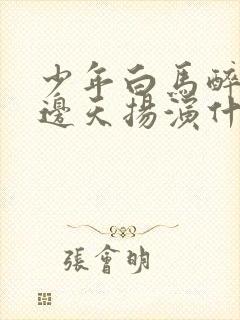 少年白馬醉
邊天揚演什
張會明